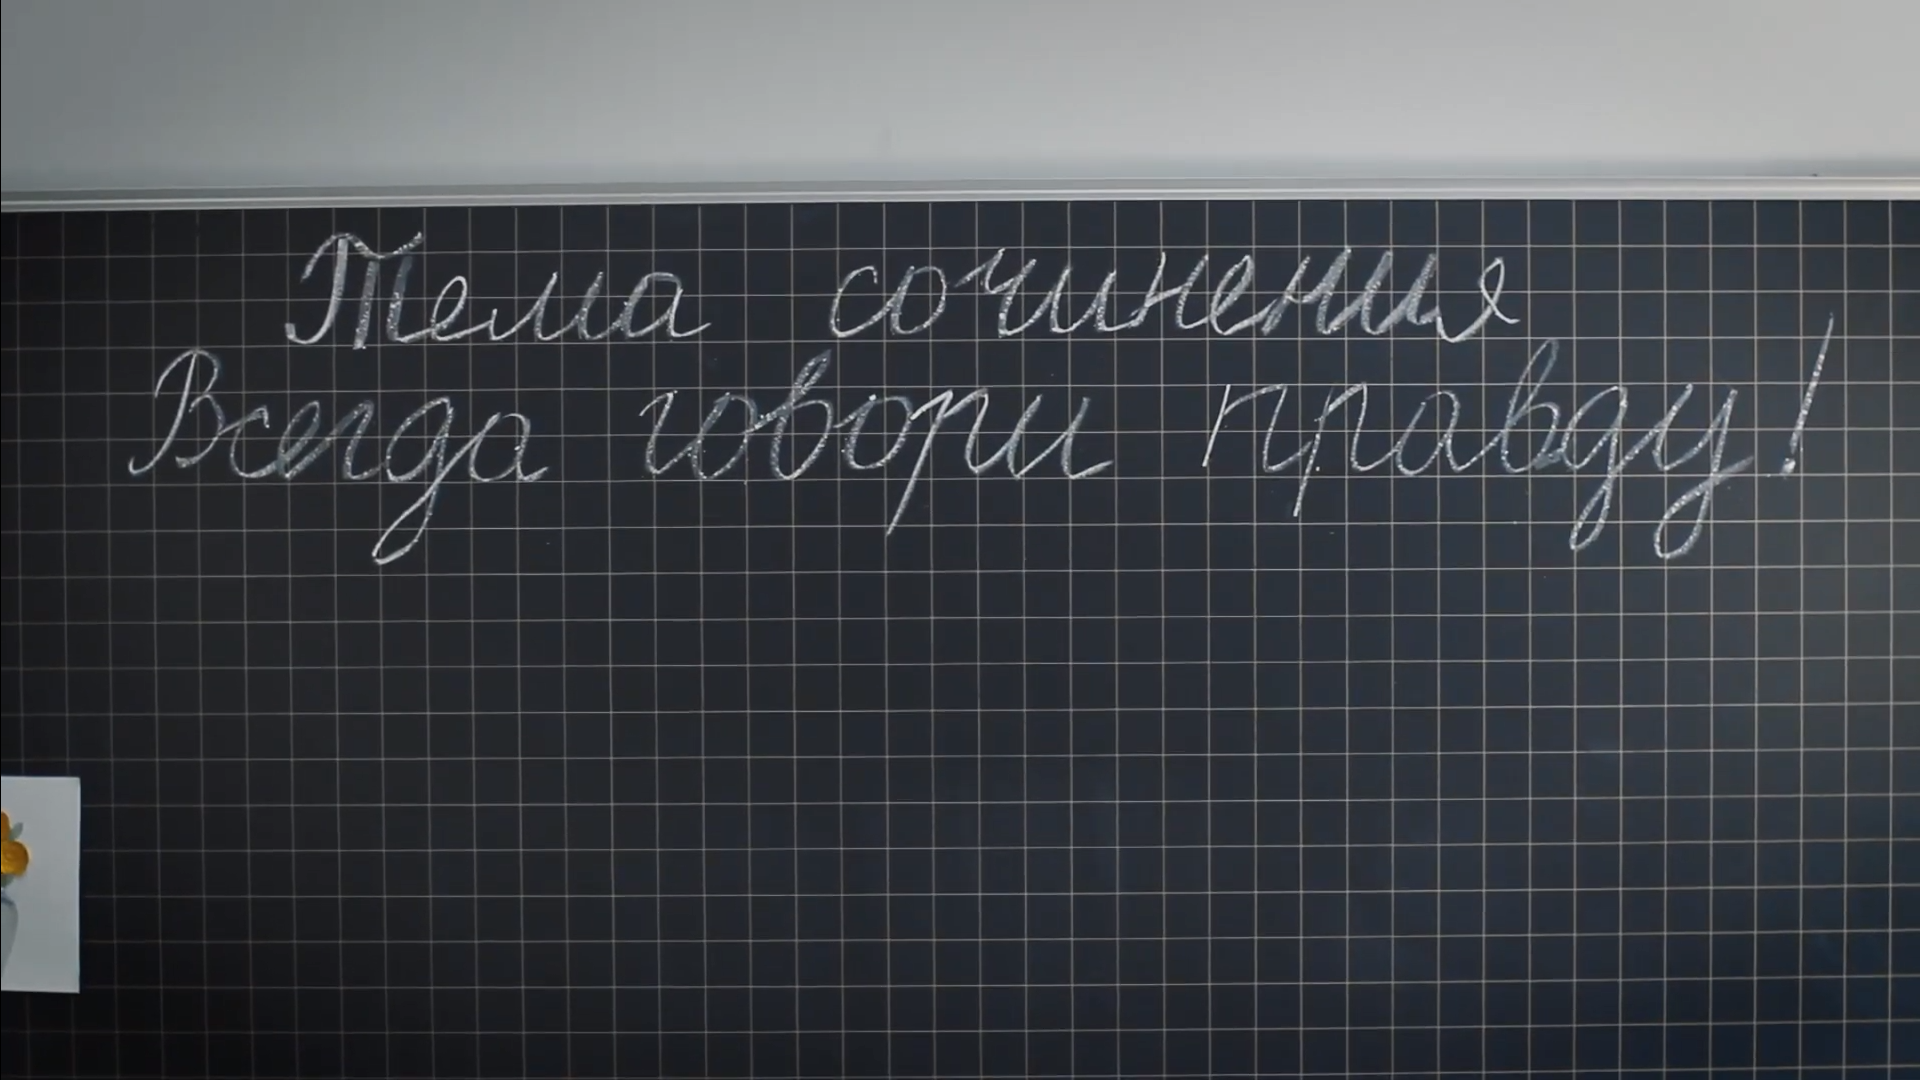 Тема сочинения
Всегда говори правду!